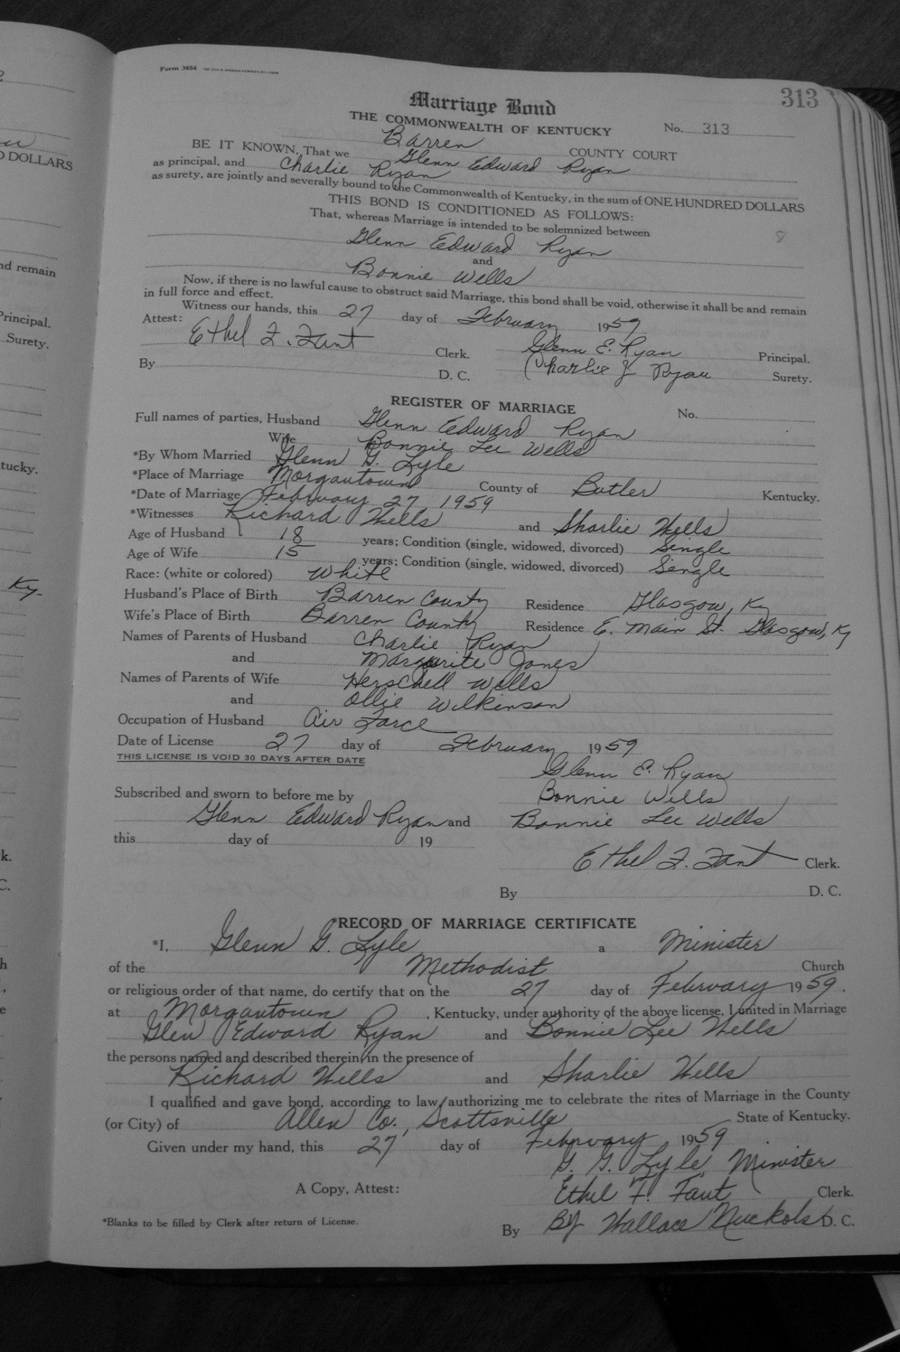 313
Form 3654
Marriage Bond
THE COMMONWEALTH OF KENTUCKY No. 313
Barren COUNTY COURT
BE IT KNOWN, That we Glenn Edward Ryan
as principal, and Charlie Ryan
as surety, are jointly and severally bound to the Commonwealth of Kentucky, in the sum of ONE HUNDRED DOLLARS
THIS BOND IS CONDITIONED AS FOLLOWS:
That, whereas Marriage is intended to be solemnized between
Glenn Edward Ryan
and
Bonnie Wells
Now, if there is no lawful cause to obstruct said Marriage, this bond shall be void, otherwise it shall be and remain
in full force and effect.
Witness our hands, this 27 day of February 1959
Attest: Ethel F. Fant Clerk. Glenn E. Ryan Principal.
By D. C. Charlie J Ryan Surety.
REGISTER OF MARRIAGE No.
Full names of parties, Husband Glenn Edward Ryan
Wife Bonnie Lee Wells
*By Whom Married Glenn G. Lyle
*Place of Marriage Morgantown County of Butler Kentucky.
*Date of Marriage February 27 1959
*Witnesses Richard Wells and Sharlie Wells
Age of Husband 18 years; Condition (single, widowed, divorced) Single
Age of Wife 15 years; Condition (single, widowed, divorced) Single
Race: (white or colored) White
Husband's Place of Birth Barren County Residence Glasgow, Ky
Wife's Place of Birth Barren County Residence E. Main St. Glasgow, Ky
Names of Parents of Husband Charlie Ryan
and Margurite Jones
Names of Parents of Wife Herschell Wells
and Ollie Wilkinson
Occupation of Husband Air Force
Date of License 27 day of February 1959
THIS LICENSE IS VOID 30 DAYS AFTER DATE
Glenn E. Ryan
Subscribed and sworn to before me by Bonnie Wells
Glenn Edward Ryan and Bonnie Lee Wells
this day of 19
Ethel F. Fant Clerk.
By D. C.
*RECORD OF MARRIAGE CERTIFICATE
*I, Glenn G. Lyle a Minister
of the Methodist Church
or religious order of that name, do certify that on the 27 day of February 1959.
at Morgantown, Kentucky, under authority of the above license, I united in Marriage
Glen Edward Ryan and Bonnie Lee Wells
the persons named and described therein in the presence of
Richard Wells and Sharlie Wells
I qualified and gave bond, according to law, authorizing me to celebrate the rites of Marriage in the County
(or City) of Allen Co., Scottsville State of Kentucky.
Given under my hand, this 27 day of February 1959
G. G. Lyle, Minister
A Copy, Attest: Ethel F. Fant Clerk.
*Blanks to be filled by Clerk after return of License.
By By Wallace Nuckols D. C.
DOLLARS
nd remain
Principal.
Surety.
tucky.
Ky.
k.
C.